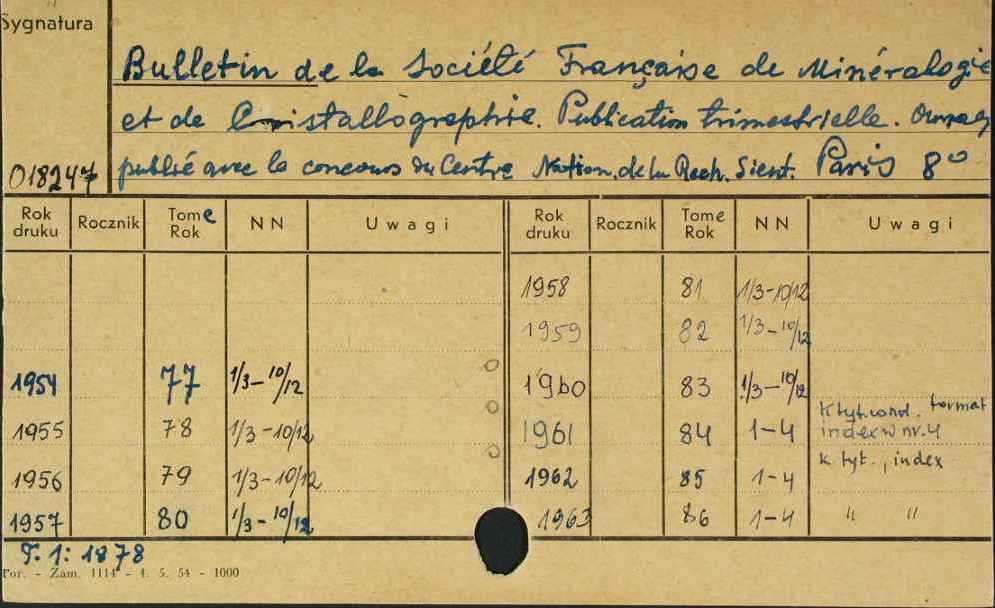 Sygnatura
Bulletin de la Société Française de Minéralogie
et de Cristallographie. Publication trimestrielle.
publié avec le concours du Centre Nation. de la Rech. Sient. Paris 8°
01824
Rok druku Rocznik Tome Rok NN Uwagi Rok druku Rocznik Tome Rok NN Uwagi
1958 81 1/3-10/12
1959 82 1/3-10/12
1954 77 1/3-10/12 1960 83 1/3-10/12
1955 78 1/3-10/12 1961 84 1-4 K. tyt. format
index w nr. 4
1956 79 1/3-10/12 1962 85 1-4 k. tyt., index
1957 80 1/3-10/12 1963 86 1-4 " "
T. 1: 1878
Tor. - Zam. 1114 - 4. 5. 54 - 1000